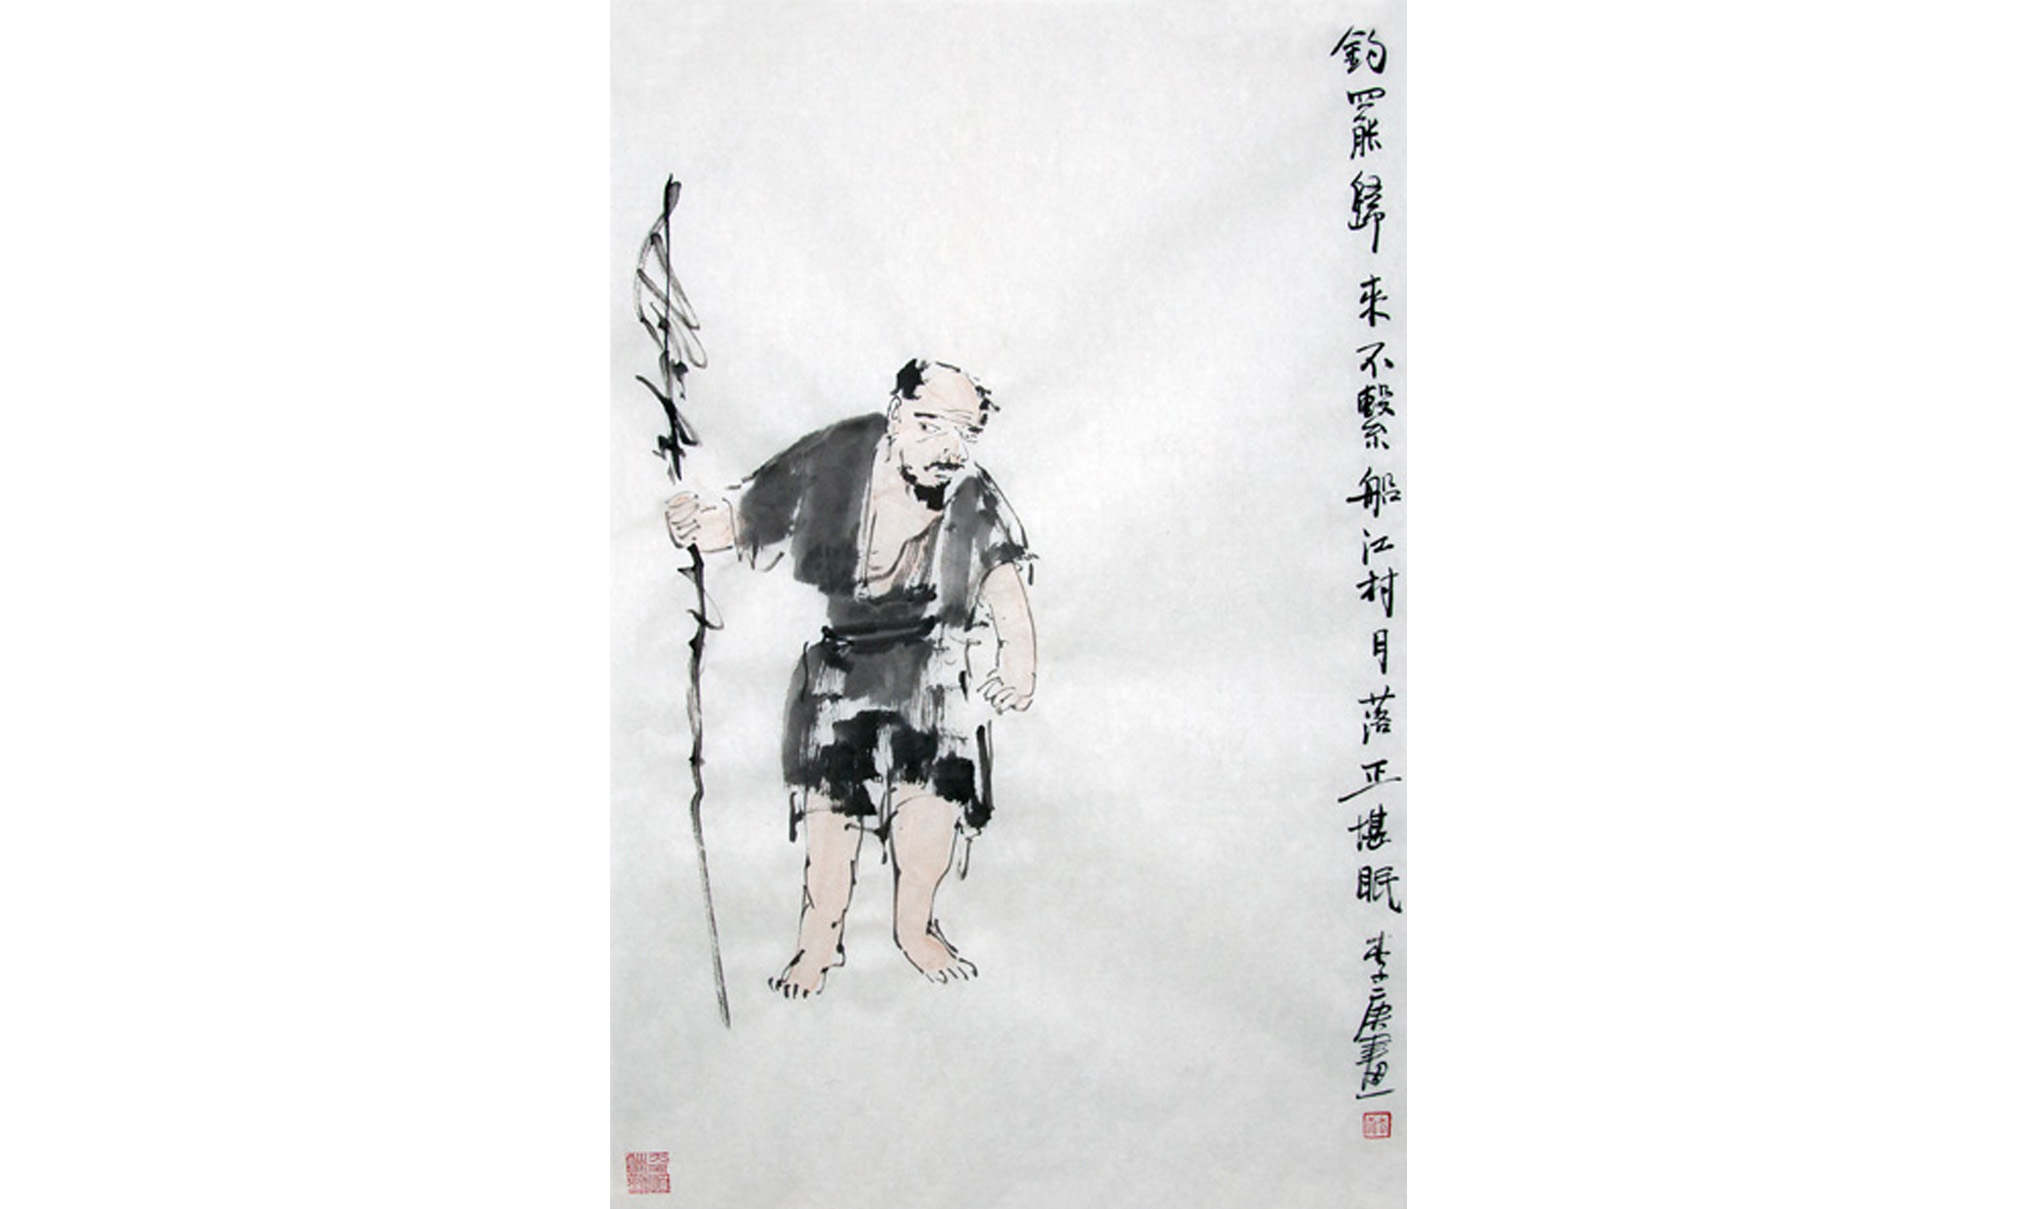 釣罷歸來不繫船江村月落正堪眠 李二庚畫